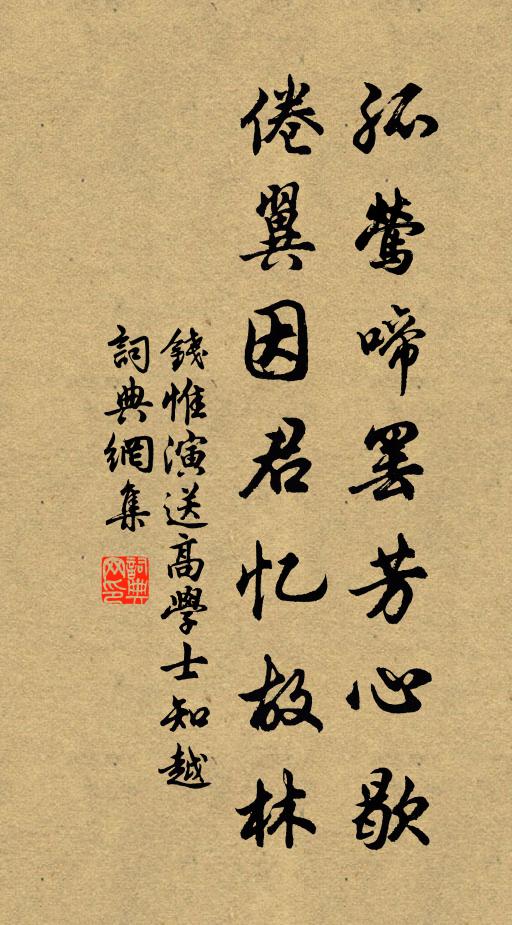 孤莺啼罢芳心歇
倦翼因君忆故林
錢惟演送高學士知越
詞典網集
詞典網印